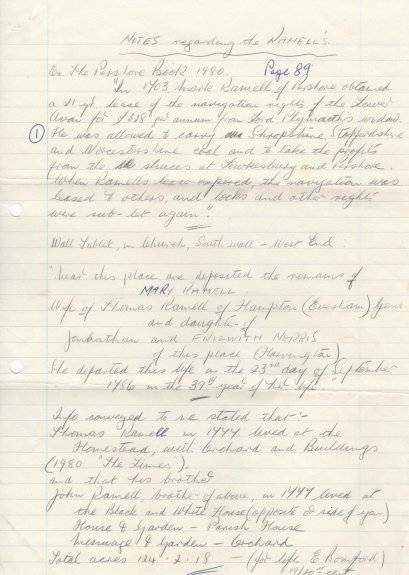 NOTES regarding the RAMELL'S
Ex. The Pershore Book 1980. Page 89
"In 1703 Mark Ramell of Pershore obtained
a 21 yr lease of the navigation rights of the Lower
Avon for £ 228 per annum from Lord Plymouth's widow.
① He was allowed to carry Shropshire, Staffordshire
and Worcestershire coal and to take the profits
from the sluices at Tewkesbury and Pershore.
When Ramell's lease expired, the navigation was
leased to others, and locks and other rights
were sub-let again".
Wall Tablet, in Church, South wall - West End.
"Near this place are deposited the remains of
MARY RAMELL
Wife of Thomas Ramell of Hampton (Evesham) Gent
and daughter of
Jonathan and FRIZWITH NORRIS
of this place (Harvington)
She departed this life on the 23rd day of September
in the 39th year of her life."
Info conveyed to me stated that:-
Thomas Ramell in 1777 lived at the
Homestead, with Orchard and Buildings
(1980 "The Limes").
and that his brother
John Ramell, brother of above, in 1777 lived at
the Black and White House (opposite side of
House & Garden - Parish House
Messuage & Garden - Orchard
Total acres 124 . 2 . 18 - (for life E. Bomford)